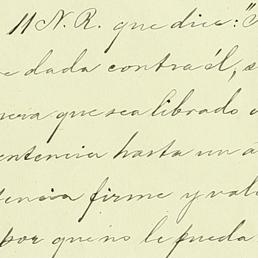 11 N. R. que dice: "
e dada contra él, s
nera que sea librado
entencia hasta un a
tencia firme y vale
por que no le pueda